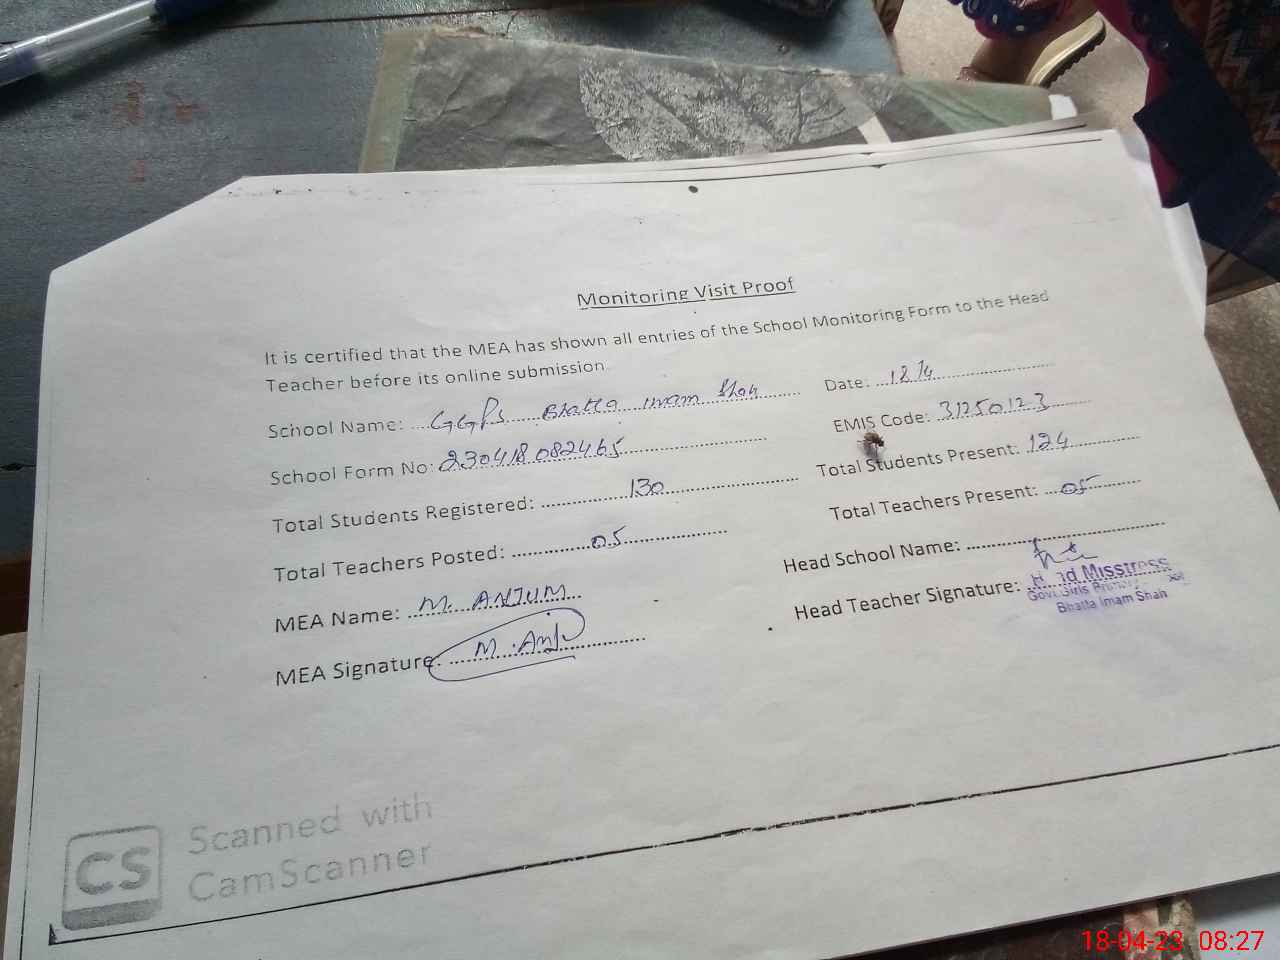 Monitoring Visit Proof
It is certified that the MEA has shown all entries of the School Monitoring Form to the Head
Teacher before its online submission
School Name: GGPS Bhatta Imam Shah Date: 18/4
School Form No: 230418082465 EMIS Code: 31250123
Total Students Registered: 130 Total Students Present: 124
Total Teachers Posted: 05 Total Teachers Present: 05
MEA Name: M. ANJUM Head School Name:
MEA Signature: M. Anju Head Teacher Signature:
Head Misstress
Govt. Girls Primary
Bhatta Imam Shah
CS Scanned with
CamScanner
18-04-23 08:27